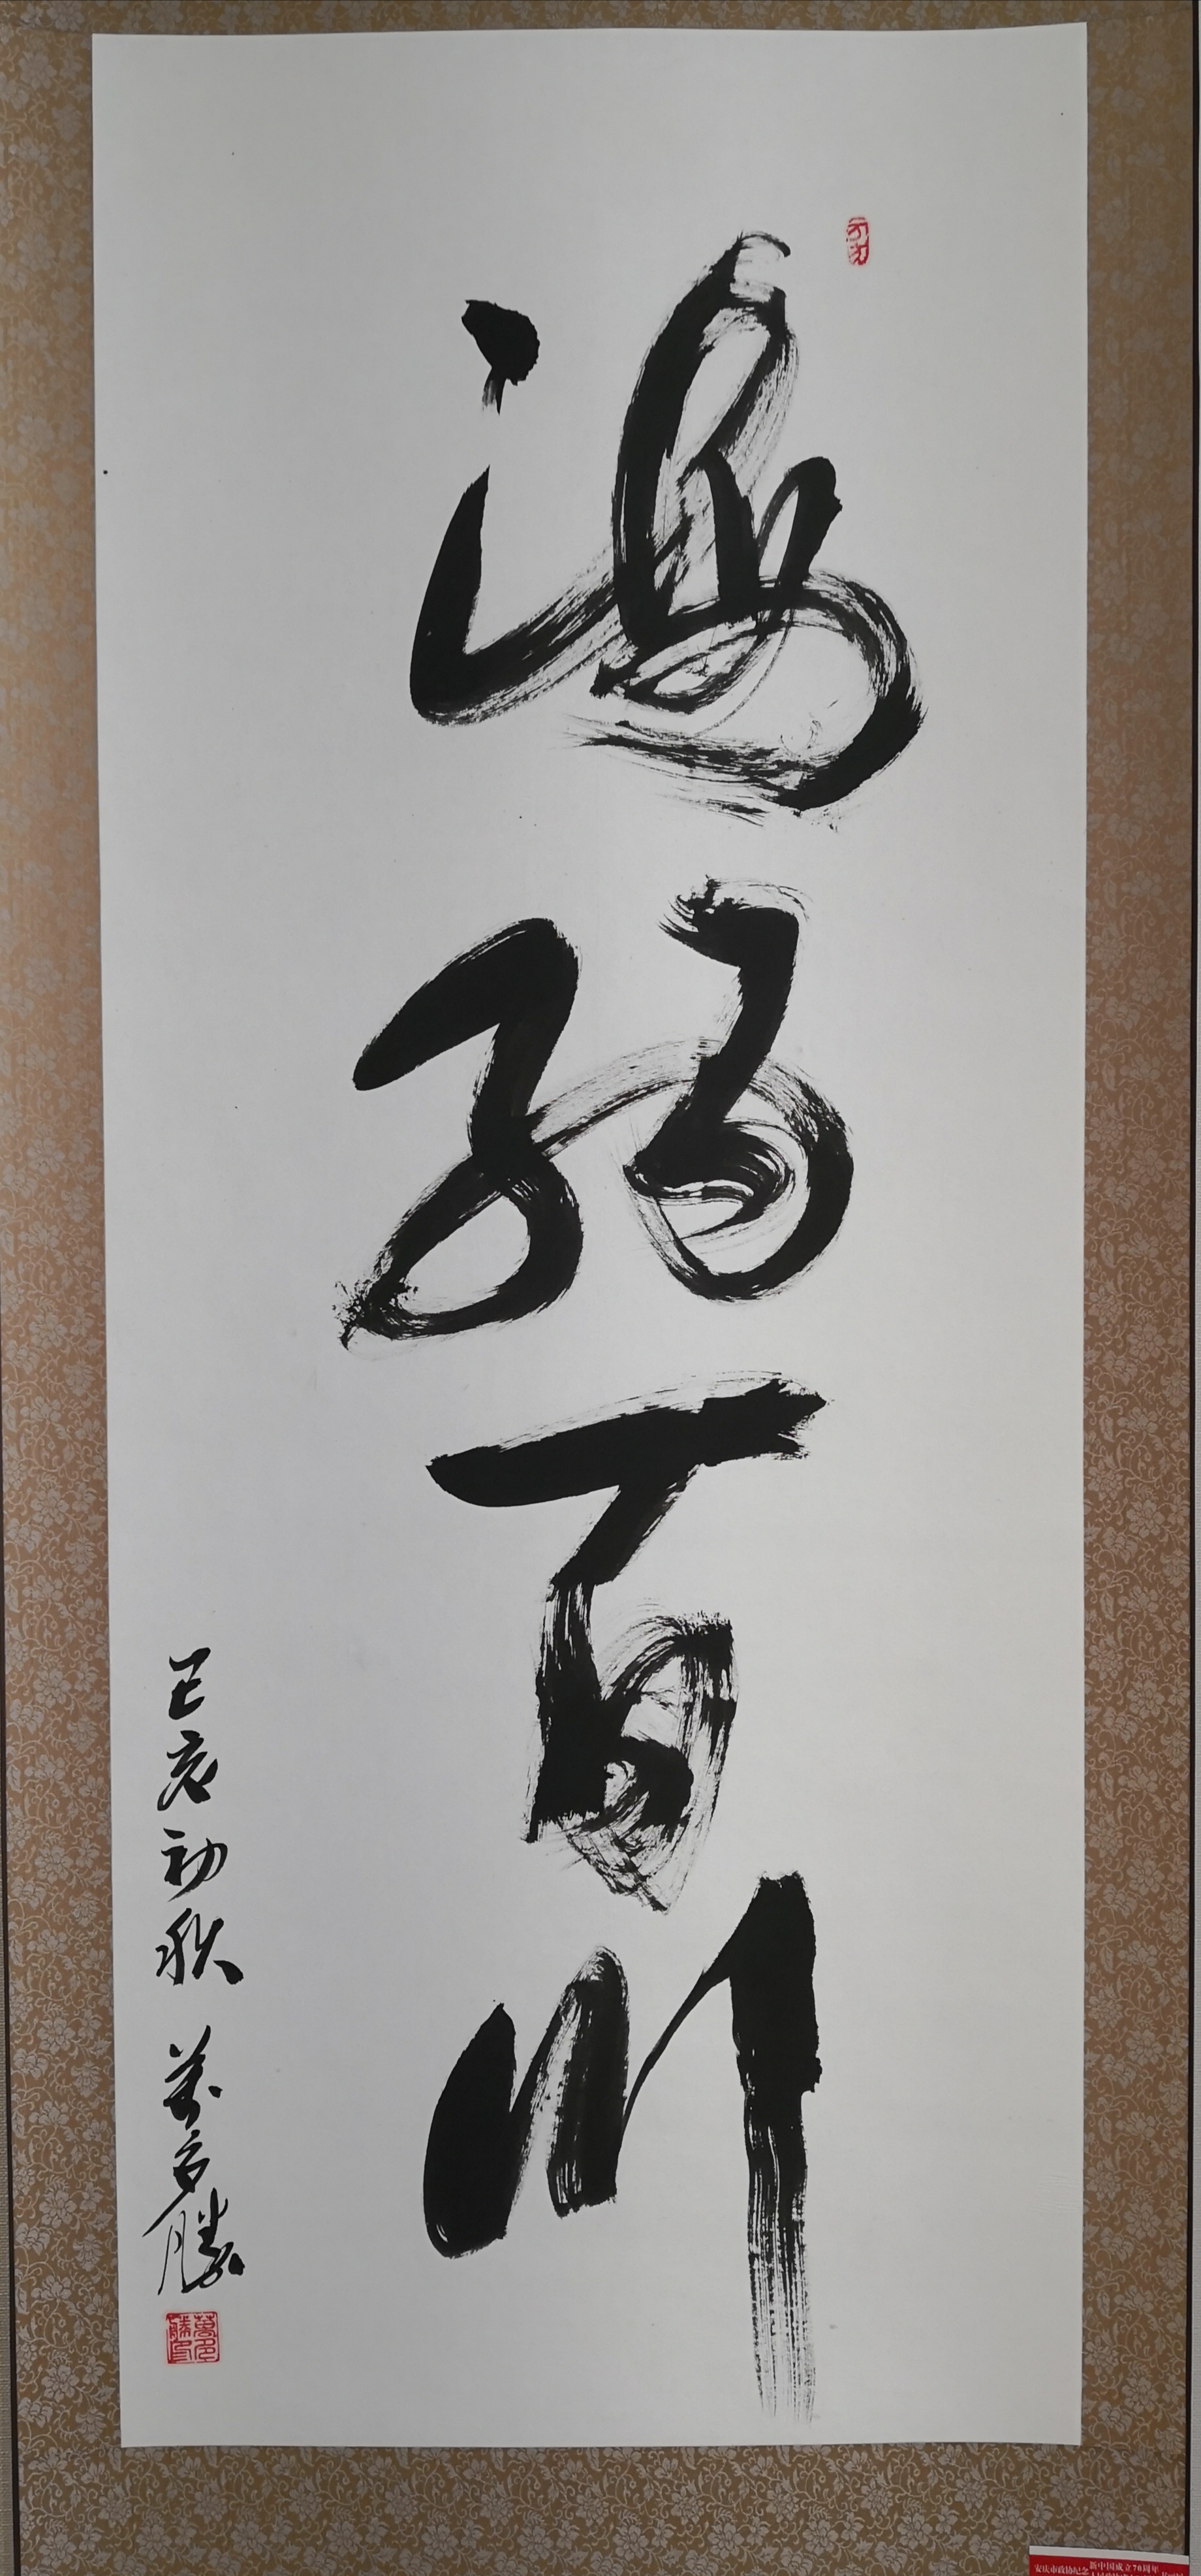 海納百川
己亥初秋 萬名勝
萬名勝印
安庆市政协纪念新中国成立70周年